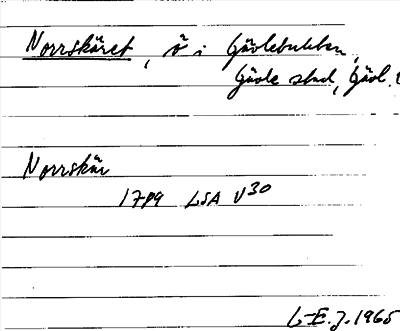 Norrskäret, ö i Gävlebukten,
Gävle stad, Gävl.
Norrskär
1789 LSA V30
L-E.J. 1965